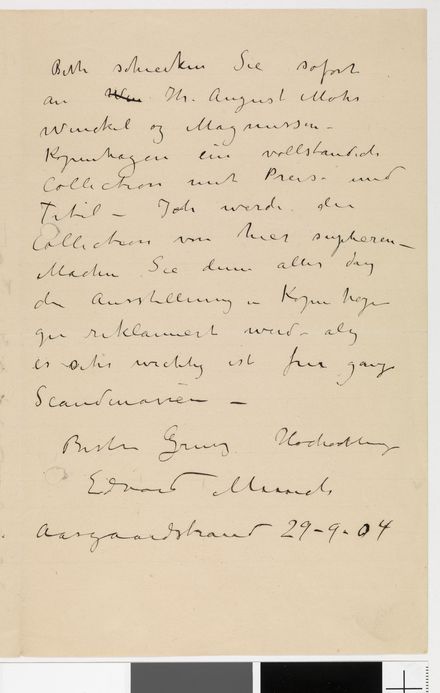 Bitte schicken Sie sofort
an Hr. August Mohr
Winckel og Magnussen –
Kopenhagen ein vollstandich
Collection mit Preis- und
Titil – Ich werde die
Collection von hier supleren –
Machen Sie denn alles das
die Ausstellung in Kopenhagen
gu reklamiert wird – als
es sehr wichtig ist fur ganz
Scandinavien –
Besten Gruss Hochachtung
Edvard Munch
Aasgaardstrand 29-9-04